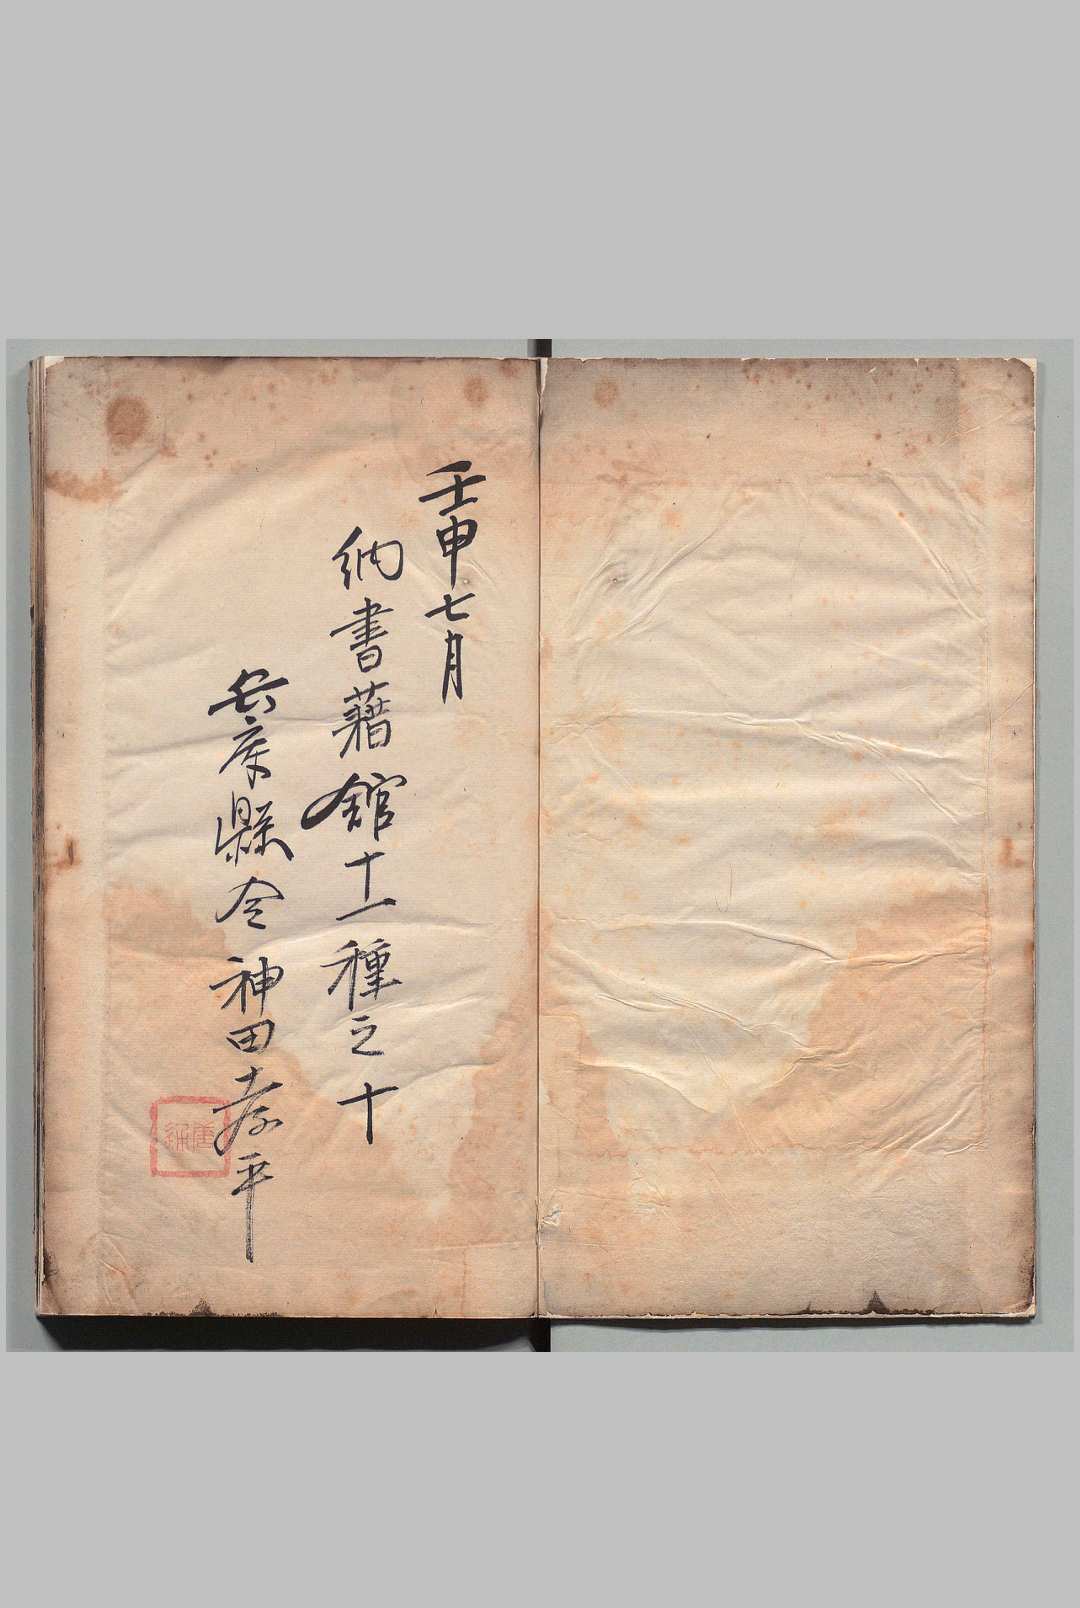 壬申七月
納書藉館十一種之十
兵庫縣令神田孝平